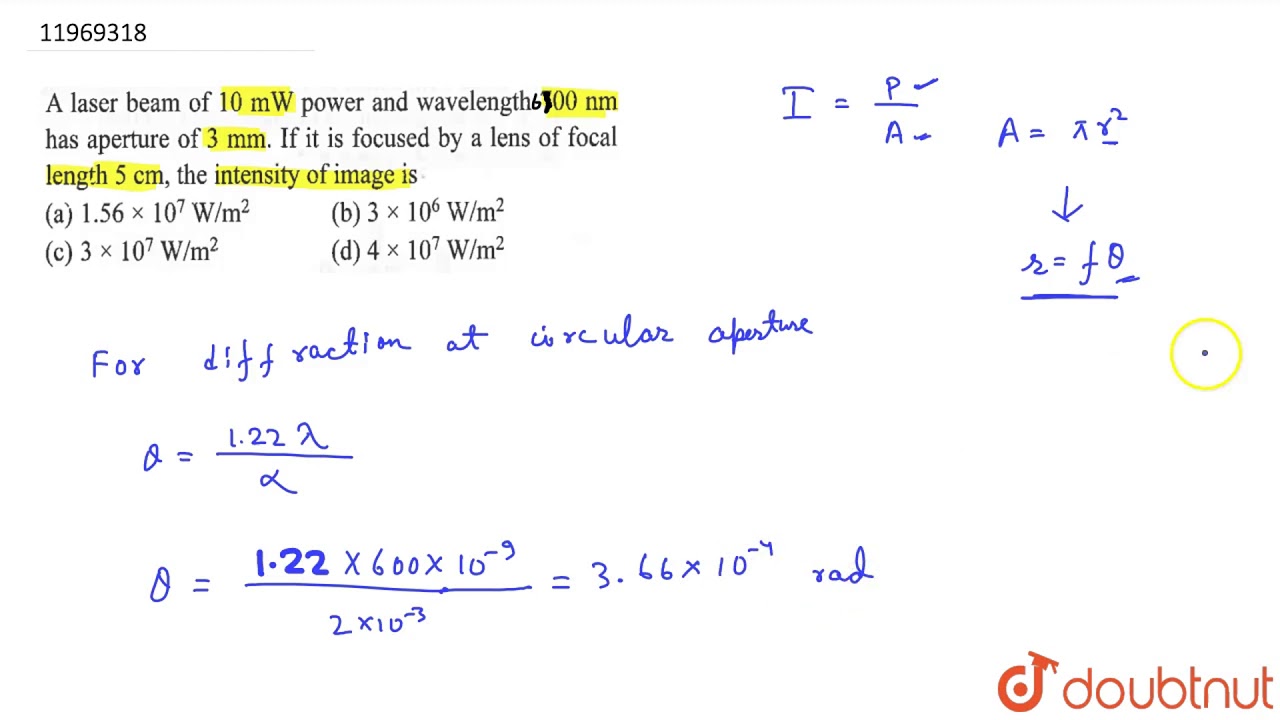 11969318
A laser beam of 10 mW power and wavelength 6300 nm
has aperture of 3 mm. If it is focused by a lens of focal
length 5 cm, the intensity of image is
(a) 1.56 × 10⁷ W/m² (b) 3 × 10⁶ W/m²
(c) 3 × 10⁷ W/m² (d) 4 × 10⁷ W/m²
I = P/A
A = πr²
↓
r = fθ
For diffraction at circular aperture
θ = 1.22 λ / α
θ = 1.22 × 600 × 10⁻⁹ / 2 × 10⁻³ = 3.66 × 10⁻⁴ rad
doubtnut